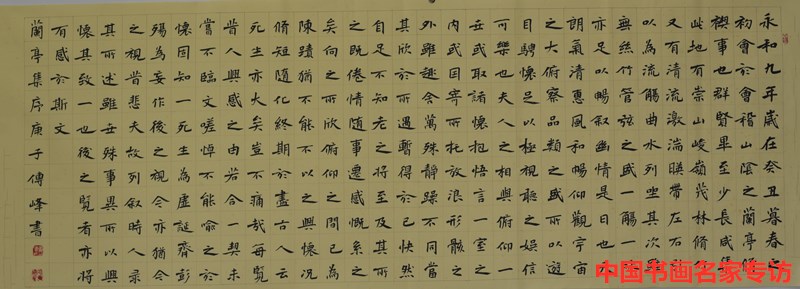 永和九年歲在癸丑暮春之
初會於會稽山陰之蘭亭脩
禊事也群賢畢至少長咸集
此地有崇山峻嶺茂林脩竹
又有清流激湍暎帶左右引
以為流觴曲水列坐其次雖
無絲竹管弦之盛一觴一詠
亦足以暢敘幽情是日也天
朗氣清惠風和暢仰觀宇宙
之大俯察品類之盛所以遊
目騁懷足以極視聽之娛信
可樂也夫人之相與俯仰一
世或取諸懷抱悟言一室之
內或因寄所托放浪形骸之
外雖趣舍萬殊靜躁不同當
其欣於所遇暫得於己快然
自足不知老之將至及其所
之既倦情隨事遷感慨系之
矣向之所欣俯仰之間已為
陳蹟猶不能不以之興懷況
脩短隨化終期於盡古人云
死生亦大矣豈不痛哉每覽
昔人興感之由若合一契未
嘗不臨文嗟悼不能喻之於
懷固知一死生為虛誕齊彭
殤為妄作後之視今亦猶今
之視昔悲夫故列敘時人錄
其所述雖世殊事異所以興
懷其致一也後之覽者亦將
有感於斯文
蘭亭集序庚子傅峰書
中国书画名家专访